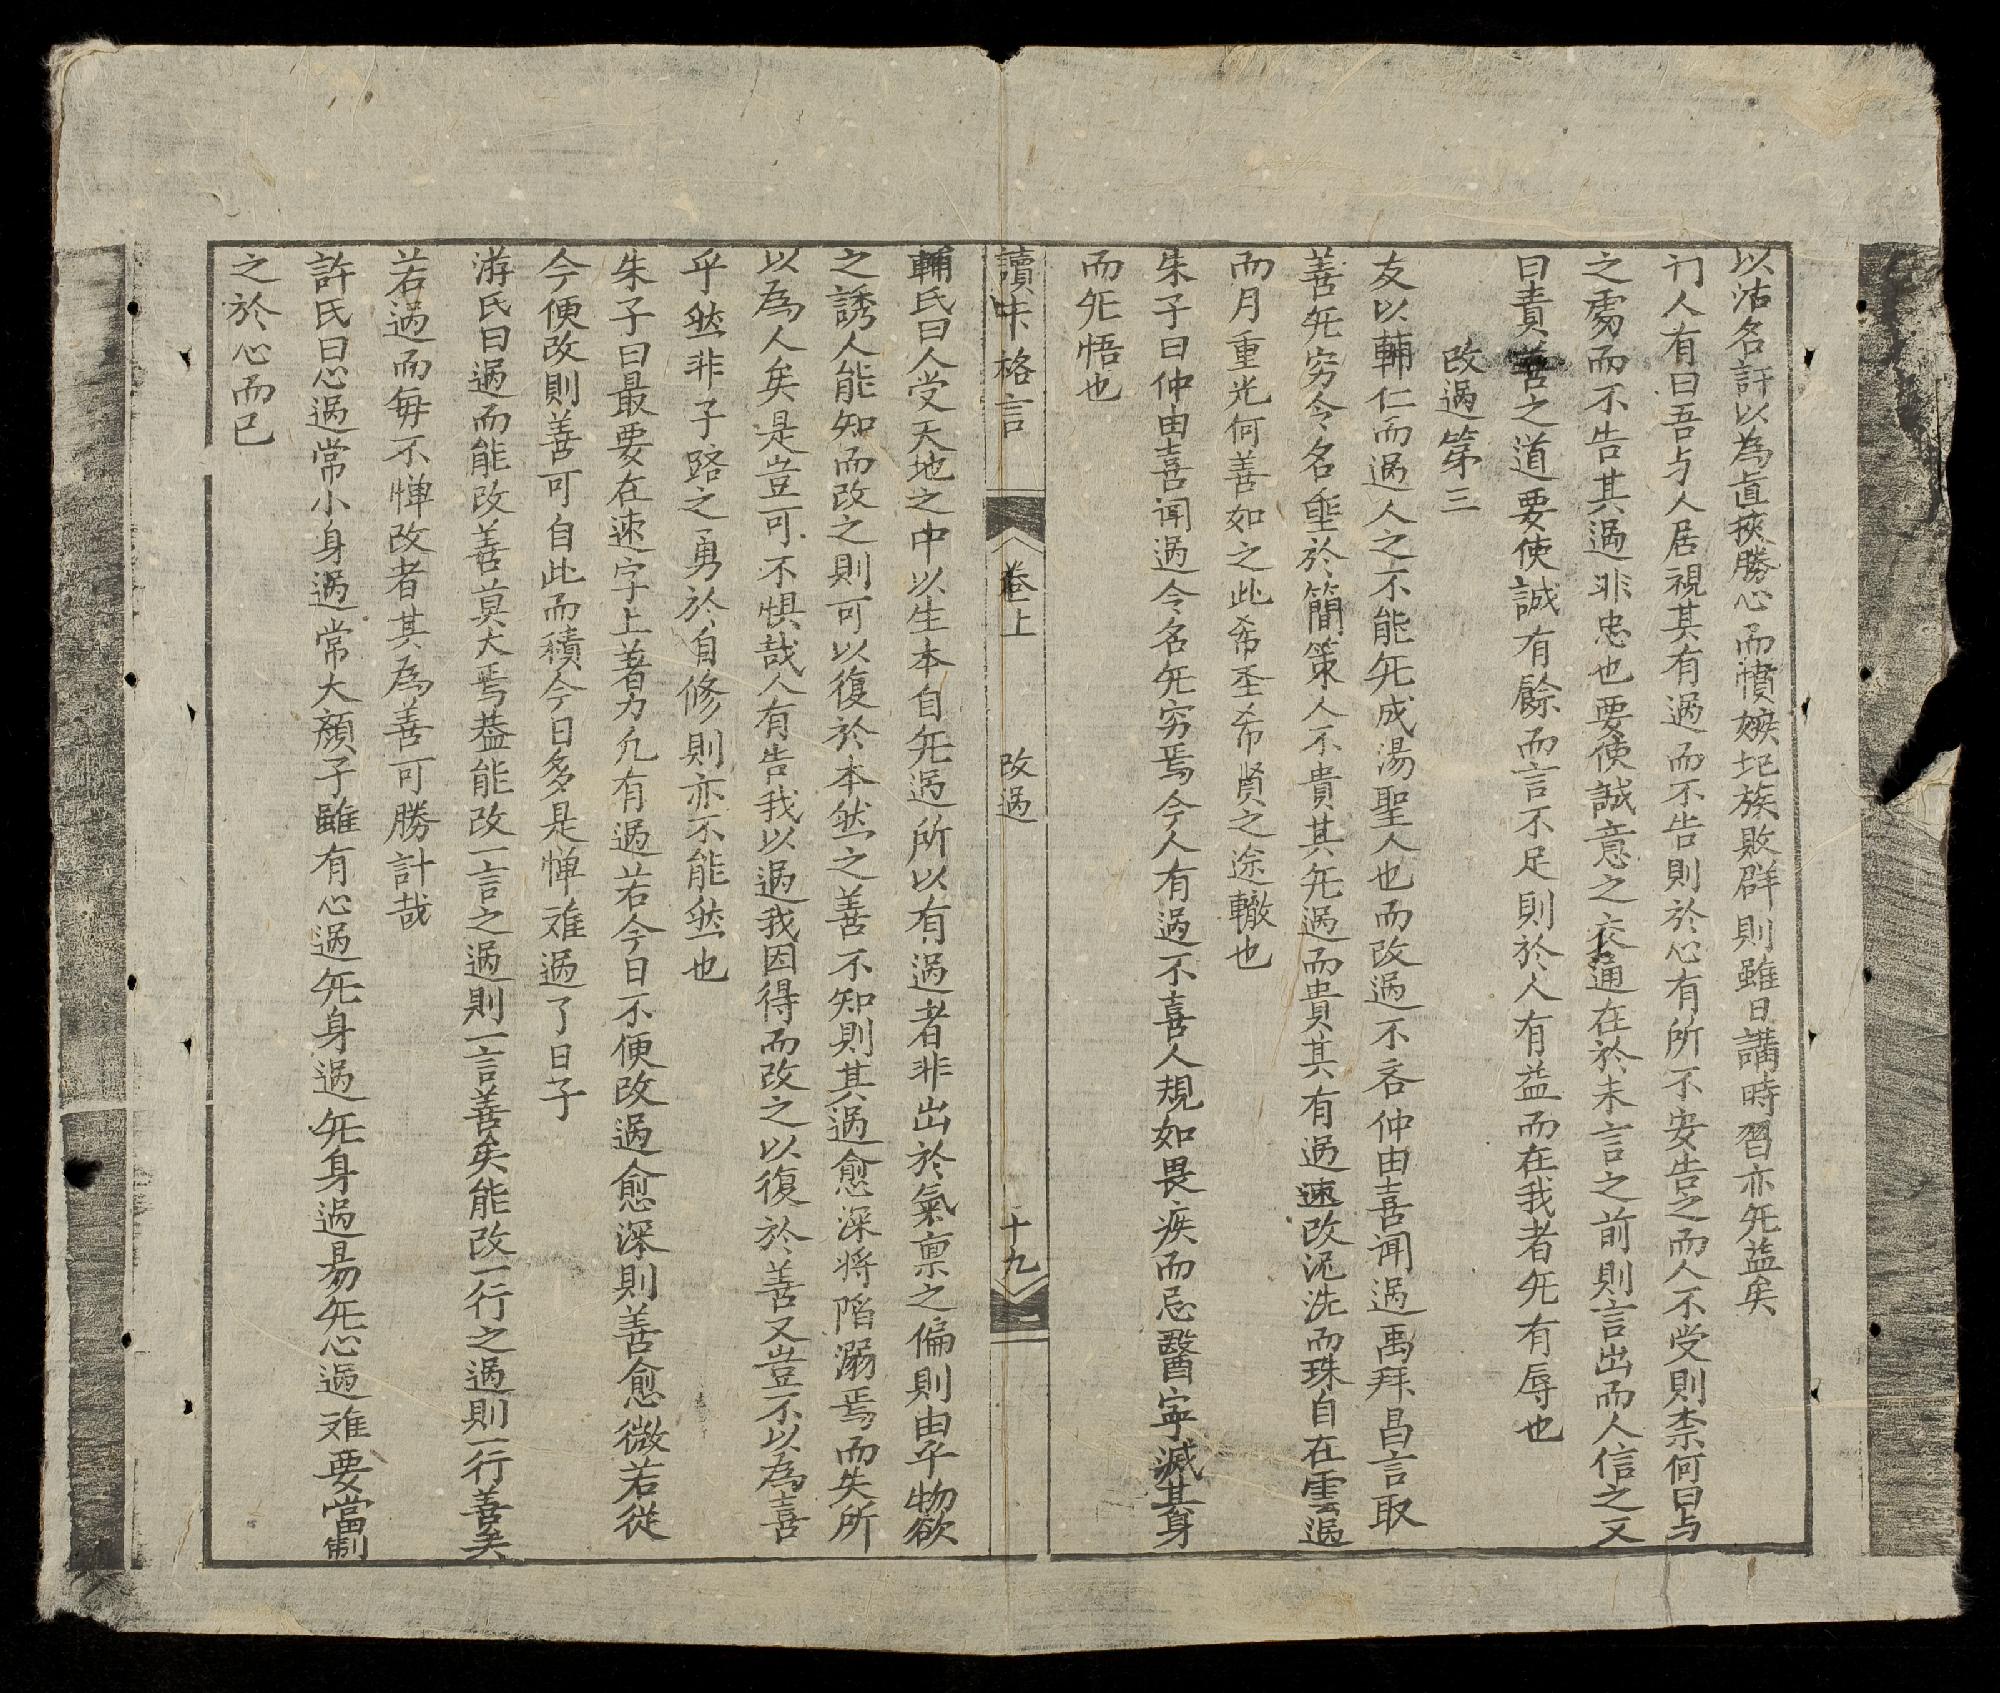 以沽名訐以為直挾勝心而懷嫉圮族敗群則雖日講時習亦无益矣
or人有曰吾与人居視其有過而不告則於心有所不安告之而人不受則柰何曰与
之處而不告其過非忠也要使誠意之交通在於未言之前則言出而人信之又
曰責善之道要使誠有餘而言不足則於人有益而在我者无有辱也
改過第三
友以輔仁而過人之不能无成湯聖人也而改過不吝仲由喜闻過禹拜昌言取
善无穷令名垂於簡策人不貴其无過而貴其有過速改泥洗而珠自在雲過
而月重光何善如之此希圣希贤之途轍也
朱子曰仲由喜闻過令名无穷焉今人有過不喜人規如畏疾而忌醫寧滅其身
而无悟也
讀中格言
卷上
改過
十九
輔氏曰人受天地之中以生本自无過所以有過者非出於氣禀之偏則由乎物欲
之誘人能知而改之則可以復於本然之善不知則其過愈深将陷溺焉而失所
以為人矣是豈可不惧哉人有告我以過我因得而改之以復於善又豈不以為喜
乎然非子路之勇於自修則亦不能然也
朱子曰最要在速字上著力凢有過若今日不便改過愈深則善愈微若從
今便改則善可自此而積今日多是惮难過了日子
游氏曰過而能改善莫大焉葢能改一言之過則一言善矣能改一行之過則一行善矣
若過而每不惮改者其為善可勝計哉
許氏曰心過常小身過常大顏子雖有心過无身過无身過易无心過难要當制
之於心而已